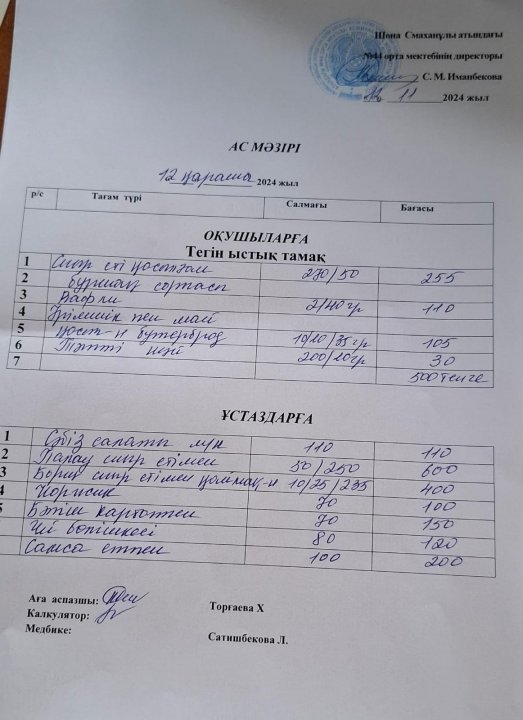 Шона Смаханұлы атындағы
№44 орта мектебінің директоры
С. М. Иманбекова
22 11 2024 жыл
АС МӘЗІРІ
12 қараша 2024 жыл
р/с Тағам түрі Салмағы Бағасы
ОҚУШЫЛАРҒА
Тегін ыстық тамақ
1 Сиыр еті қосылған 270/50 255
2 бұршақ сорпасы
3 Вафли 2/40гр 110
4 Ірімшік пен май
5 қост-н бутерброд 10/10/35гр 105
6 Тәтті шай 200/10гр 30
7 500 тенге
ҰСТАЗДАРҒА
1 Сәбіз салаты 110 110
2 Палау сиыр етімен 50/250 600
3 Борщ сиыр етімен қаймақ-н 10/25/235 400
4 70 100
5 Бәліш картоппен 70 150
80 120
Самса етпен 100 200
Аға аспазшы:
Калкулятор: Торғаева Х
Медбике:
Сатишбекова Л.